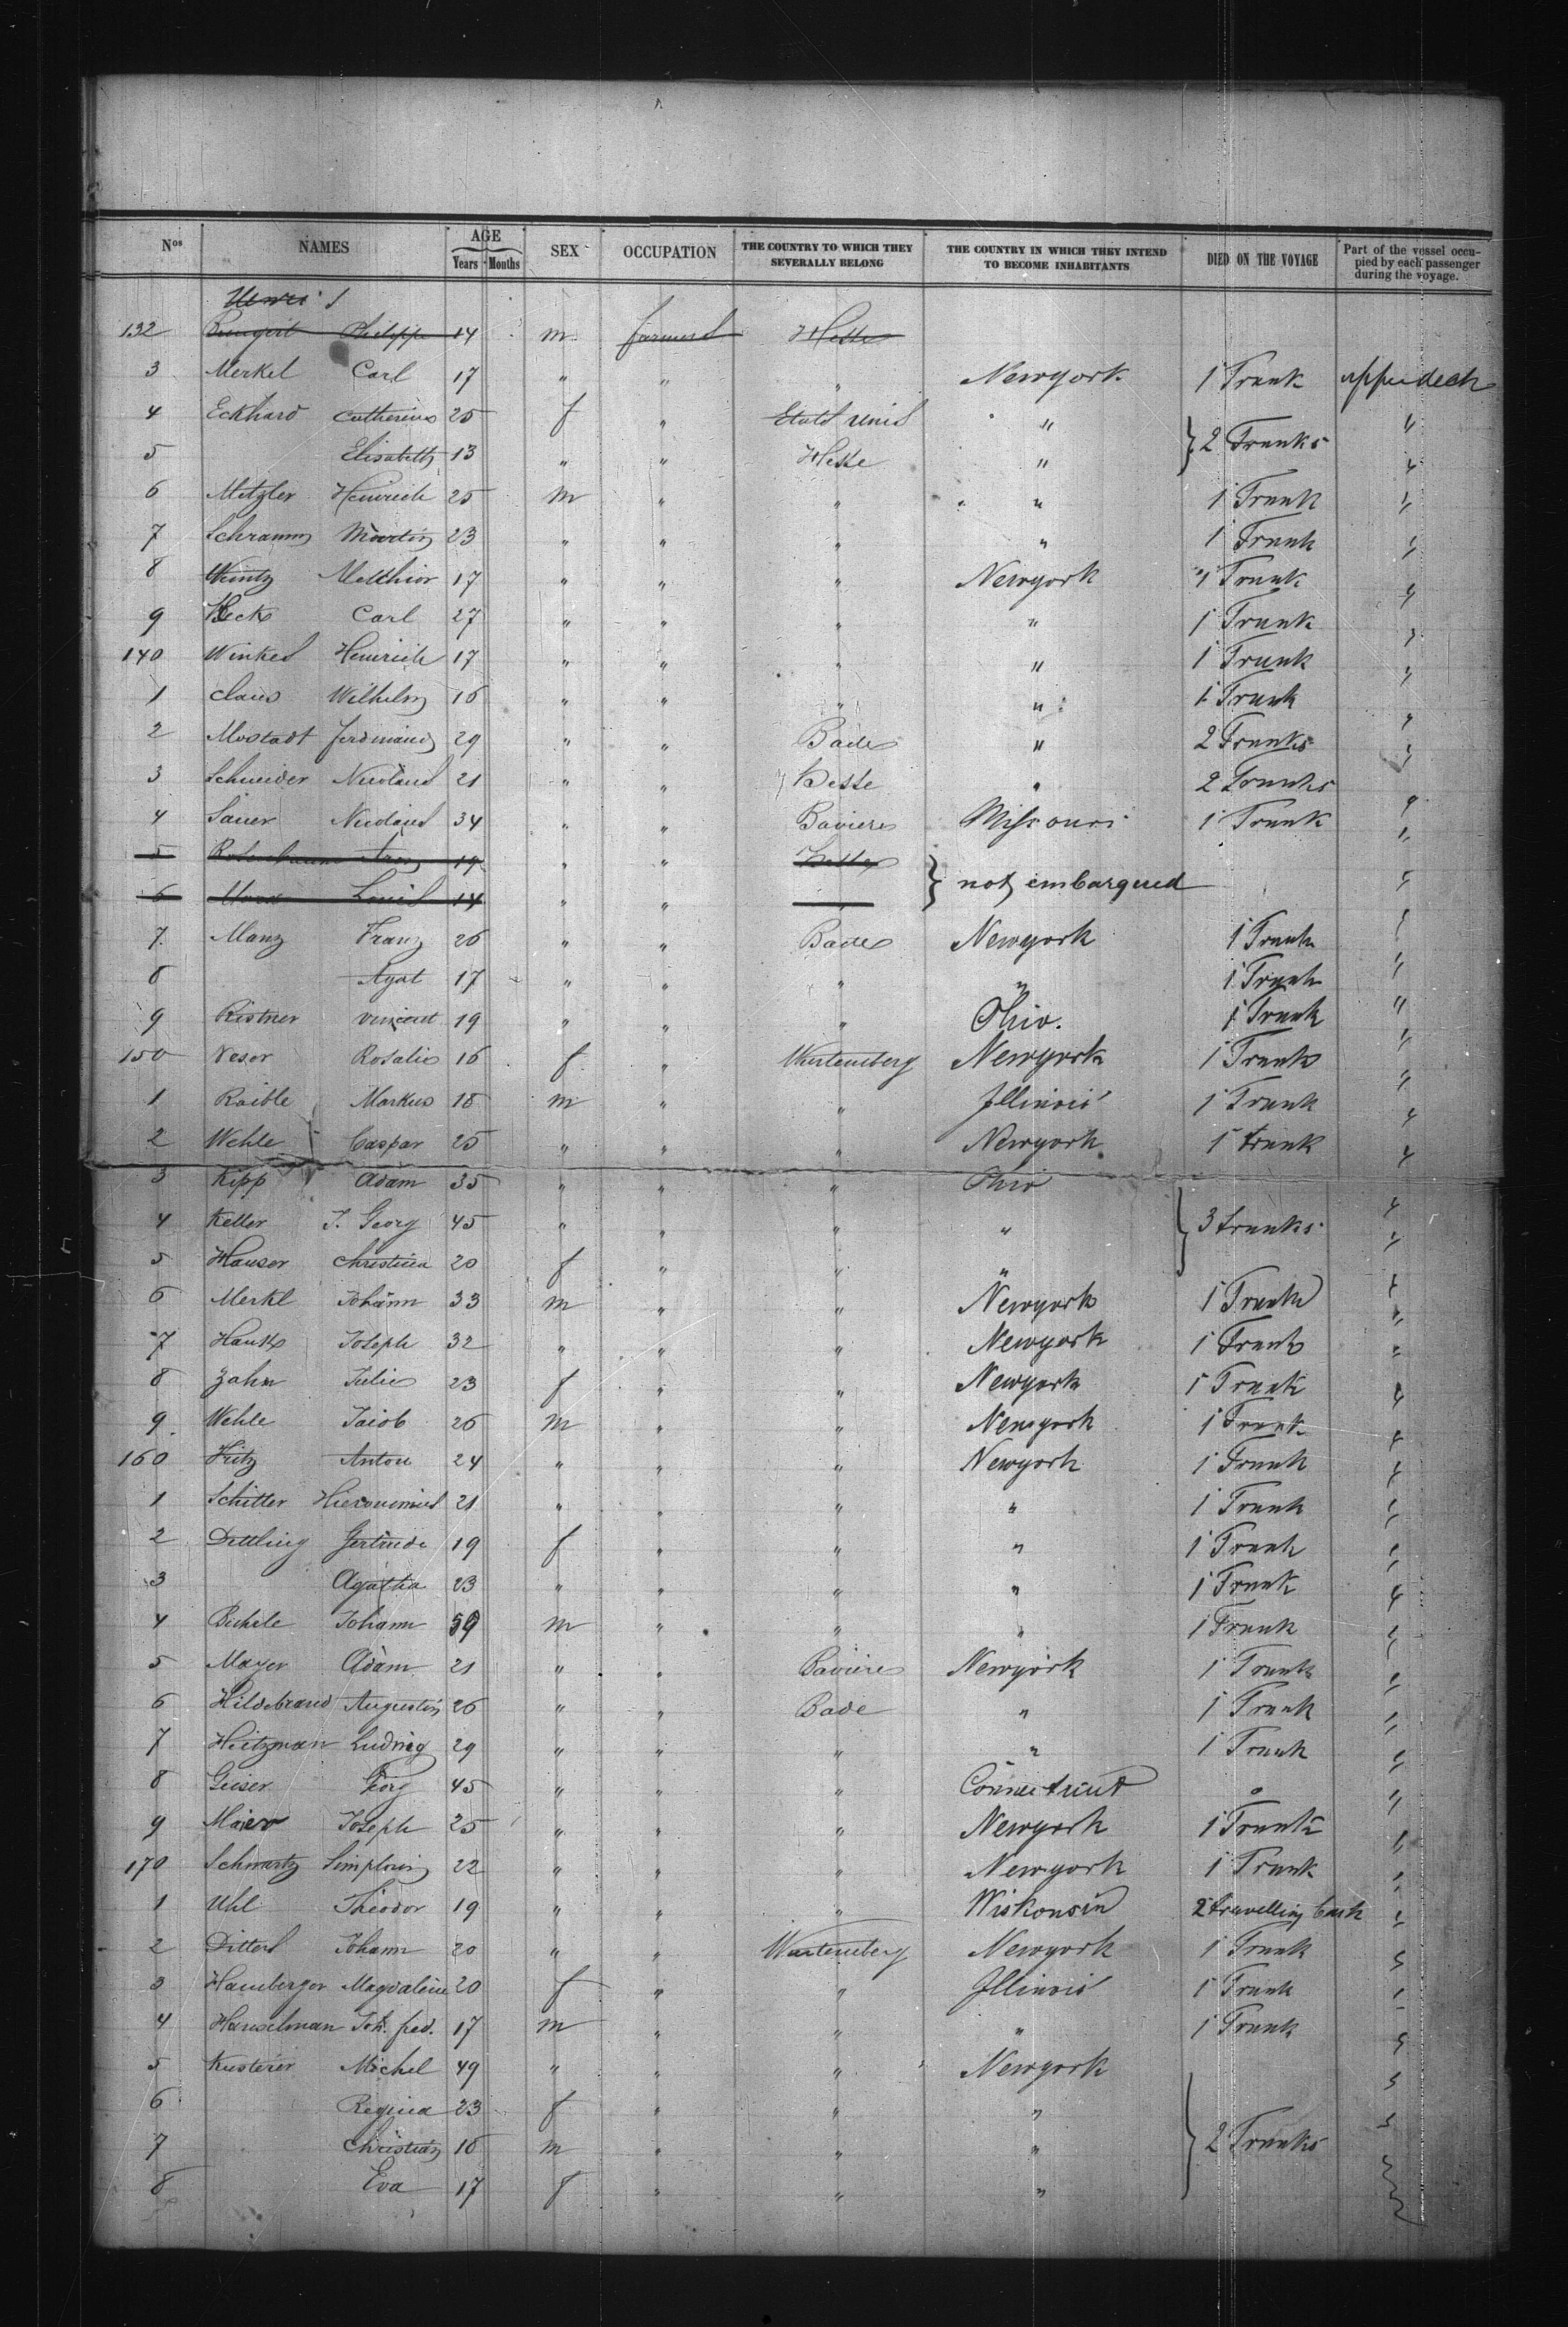 Nos NAMES AGE Years Months SEX OCCUPATION THE COUNTRY TO WHICH THEY SEVERALLY BELONG THE COUNTRY IN WHICH THEY INTEND TO BECOME INHABITANTS DIED ON THE VOYAGE Part of the vessel occupied by each passenger during the voyage.
132 Philippe 14 m farmers Hesse
3 Merkel Carl 17 " " " Newyork 1 Trunk upper deck
4 Eckhard Catherine 25 f " Etats Unis " } 2 Trunks "
5 Elisabeth 13 " " Hesse " "
6 Metzler Heinrich 25 m " " " 1 Trunk "
7 Schramm Martin 23 " " " " 1 Trunk "
8 Weintz Melchior 17 " " " Newyork 1 Trunk "
9 Beck Carl 27 " " " " 1 Trunk "
140 Winkel Heinrich 17 " " " " 1 Trunk "
1 Claus Wilhelm 16 " " " " 1 Trunk "
2 Mostadt Ferdinand 29 " " Bade " 2 Trunks "
3 Schneider Nicolaus 21 " " Hesse " 2 Trunks "
4 Sauer Nicolaus 34 " " Baviere Missouri 1 Trunk "
5 19 " " Hesse } not embarqued "
6 Louis 14 " " "
7 Manz Franz 26 " " Bade Newyork 1 Trunk "
8 Agat 17 " " " " 1 Trunk "
9 Ristner Vincent 19 " " " Ohio. 1 Trunk "
150 Veser Rosalie 16 f " Wurtemberg Newyork 1 Trunk "
1 Raible Markus 18 m " " Illinois 1 Trunk "
2 Wehle Caspar 25 " " " Newyork 1 trunk "
3 Kipp Adam 35 " " " Ohio } 3 trunks "
4 Keller J. Georg 45 " " " " "
5 Hauser Christina 20 f " " " "
6 Merkl Johann 33 m " " Newyork 1 Trunk "
7 Hauk Joseph 32 " " " Newyork 1 Trunk "
8 Zahn Julie 23 f " " Newyork 1 Trunk "
9 Wehle Jacob 26 m " " Newyork 1 Trunk "
160 Hitz Anton 24 " " " Newyork 1 Trunk "
1 Schitter Hieronimus 21 " " " " 1 Trunk "
2 Dettling Gertrude 19 f " " " 1 Trunk "
3 Agatha 23 " " " " 1 Trunk "
4 Johann 59 m " " " 1 Trunk "
5 Mayer Adam 21 " " Baviere Newyork 1 Trunk "
6 Hildebrand Augustin 26 " " Bade " 1 Trunk "
7 Heitzman Ludwig 29 " " " " 1 Trunk "
8 Geiser Georg 45 " " " Connecticut o "
9 Maier Joseph 25 " " " Newyork 1 Trunk "
170 Schwartz Simplorin 22 " " " Newyork 1 Trunk "
1 Uhl Theodor 19 " " " Wiskonsin 2 travelling "
2 Ditterl Johann 20 " " Wurtemberg Newyork 1 Trunk "
3 Hamberger Magdalene 20 f " " Illinois 1 Trunk "
4 Hanselman Joh. fred. 17 m " " " 1 Trunk "
5 Kusterer Michel 49 " " " Newyork } 2 Trunks "
6 Regina 23 f " " " "
7 Christian 18 m " " " "
8 Eva 17 f " " " "